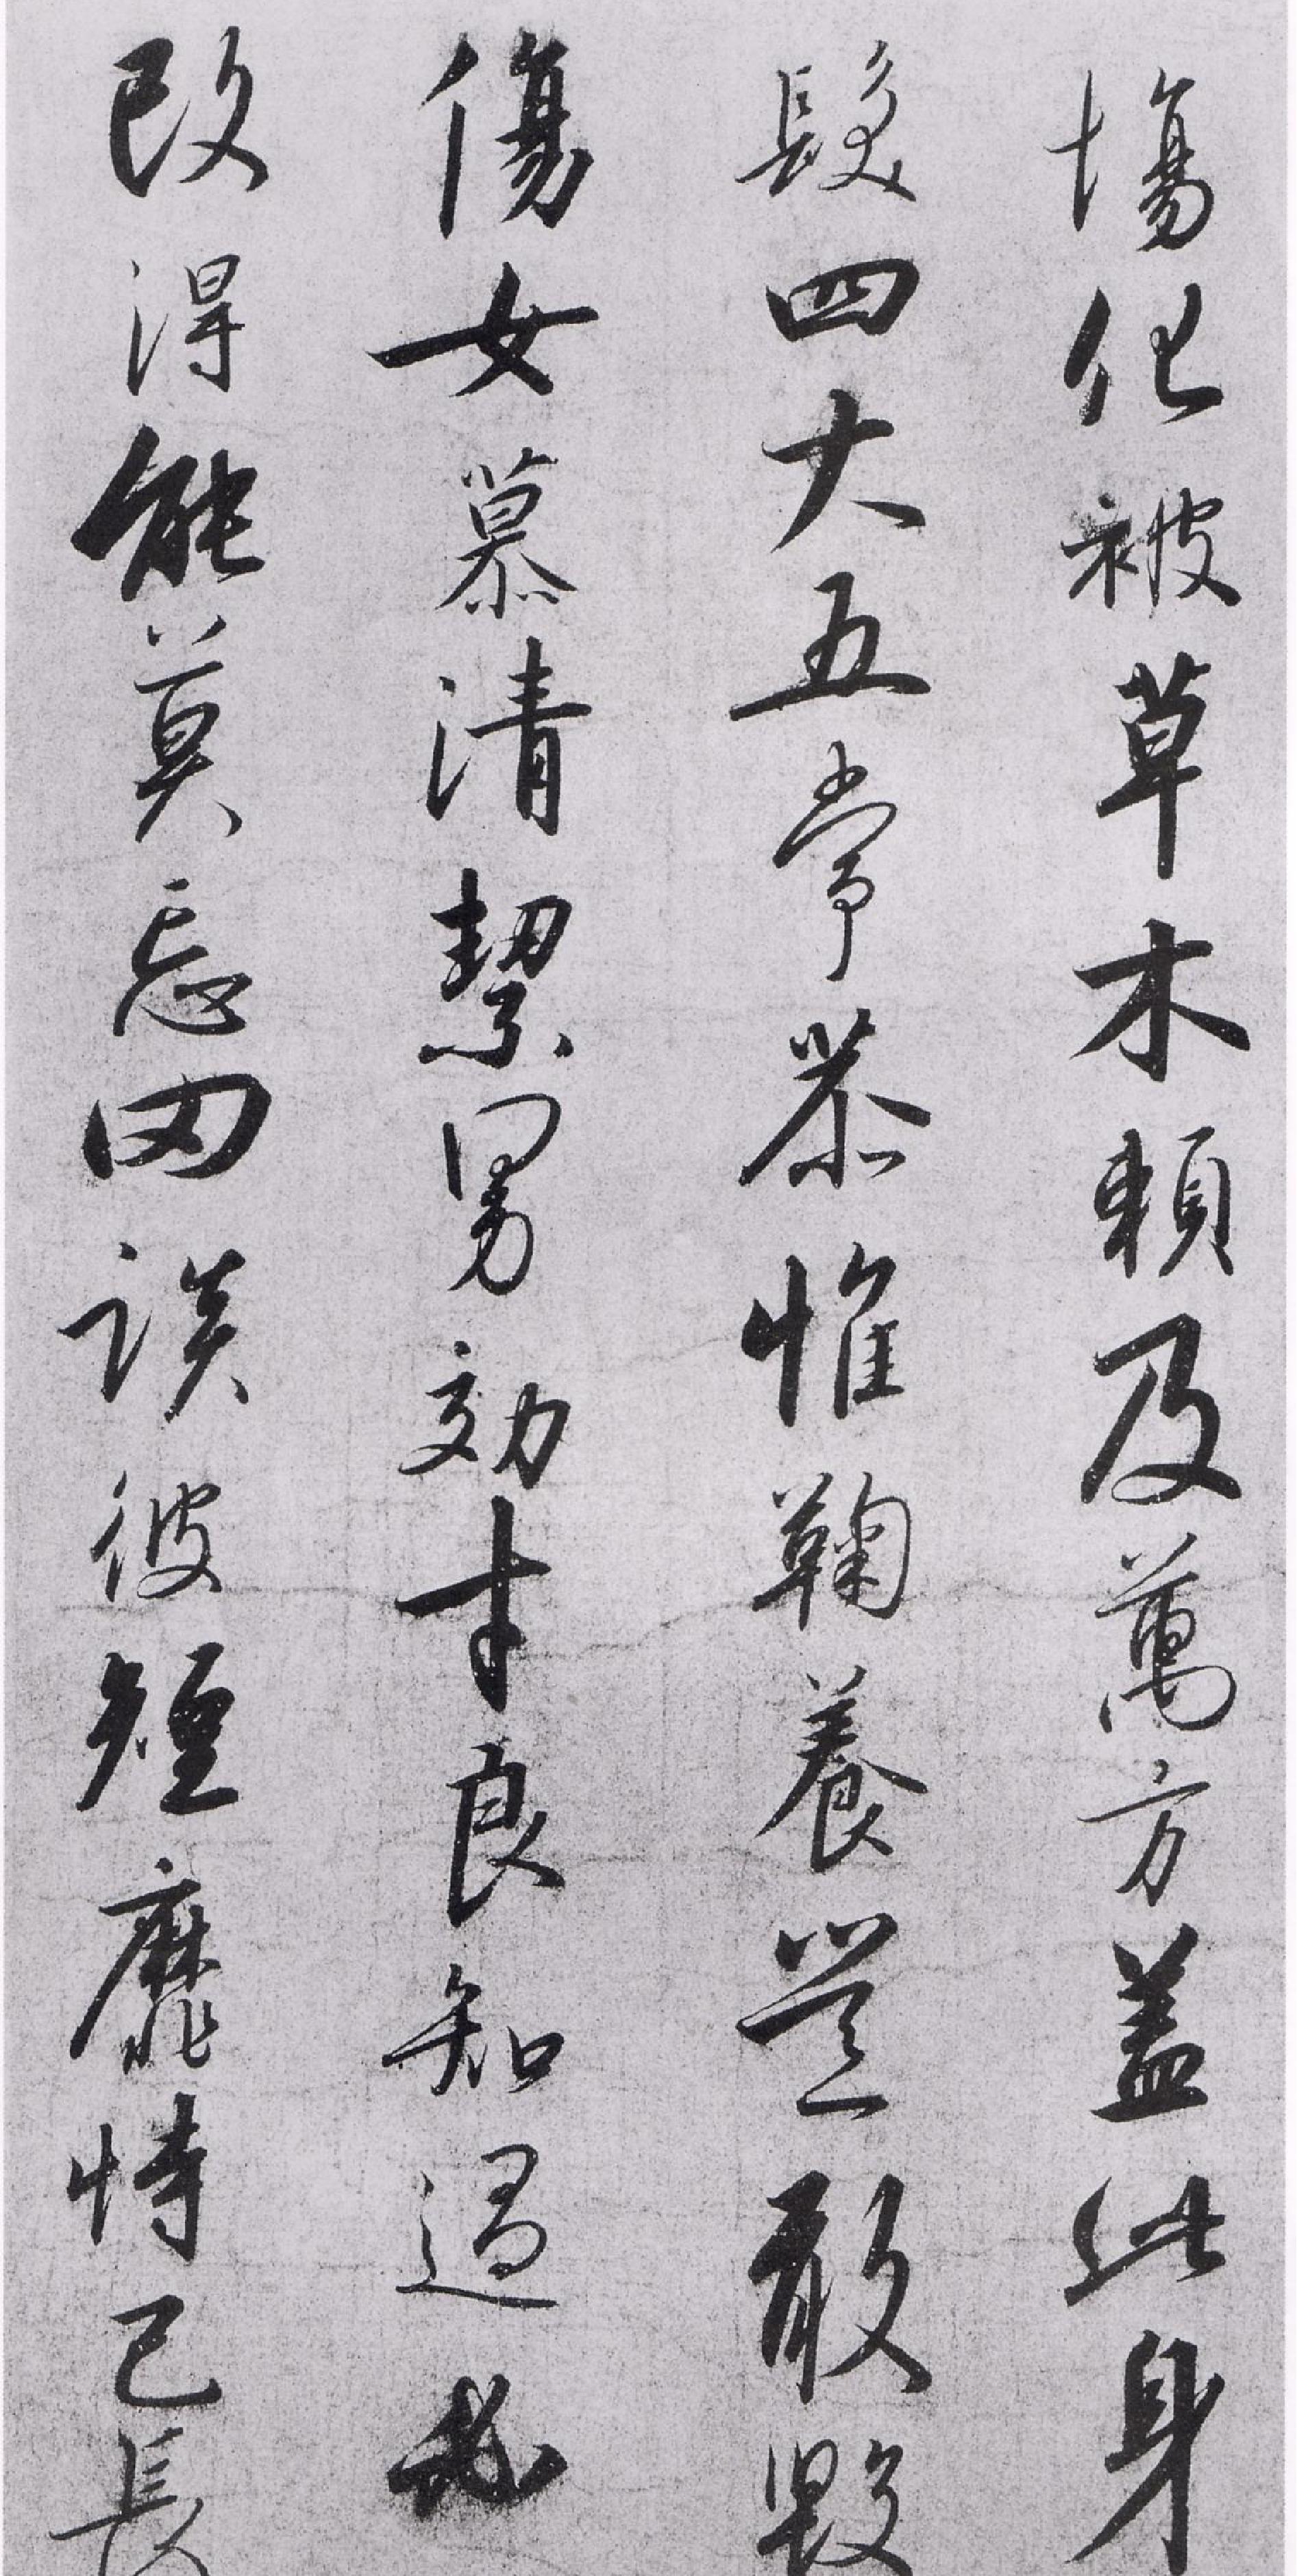 場化被草木賴及萬方蓋此身
髮四大五常恭惟鞠養豈敢毀
傷女慕清絜男効才良知過必
改得能莫忘罔談彼短靡恃己長